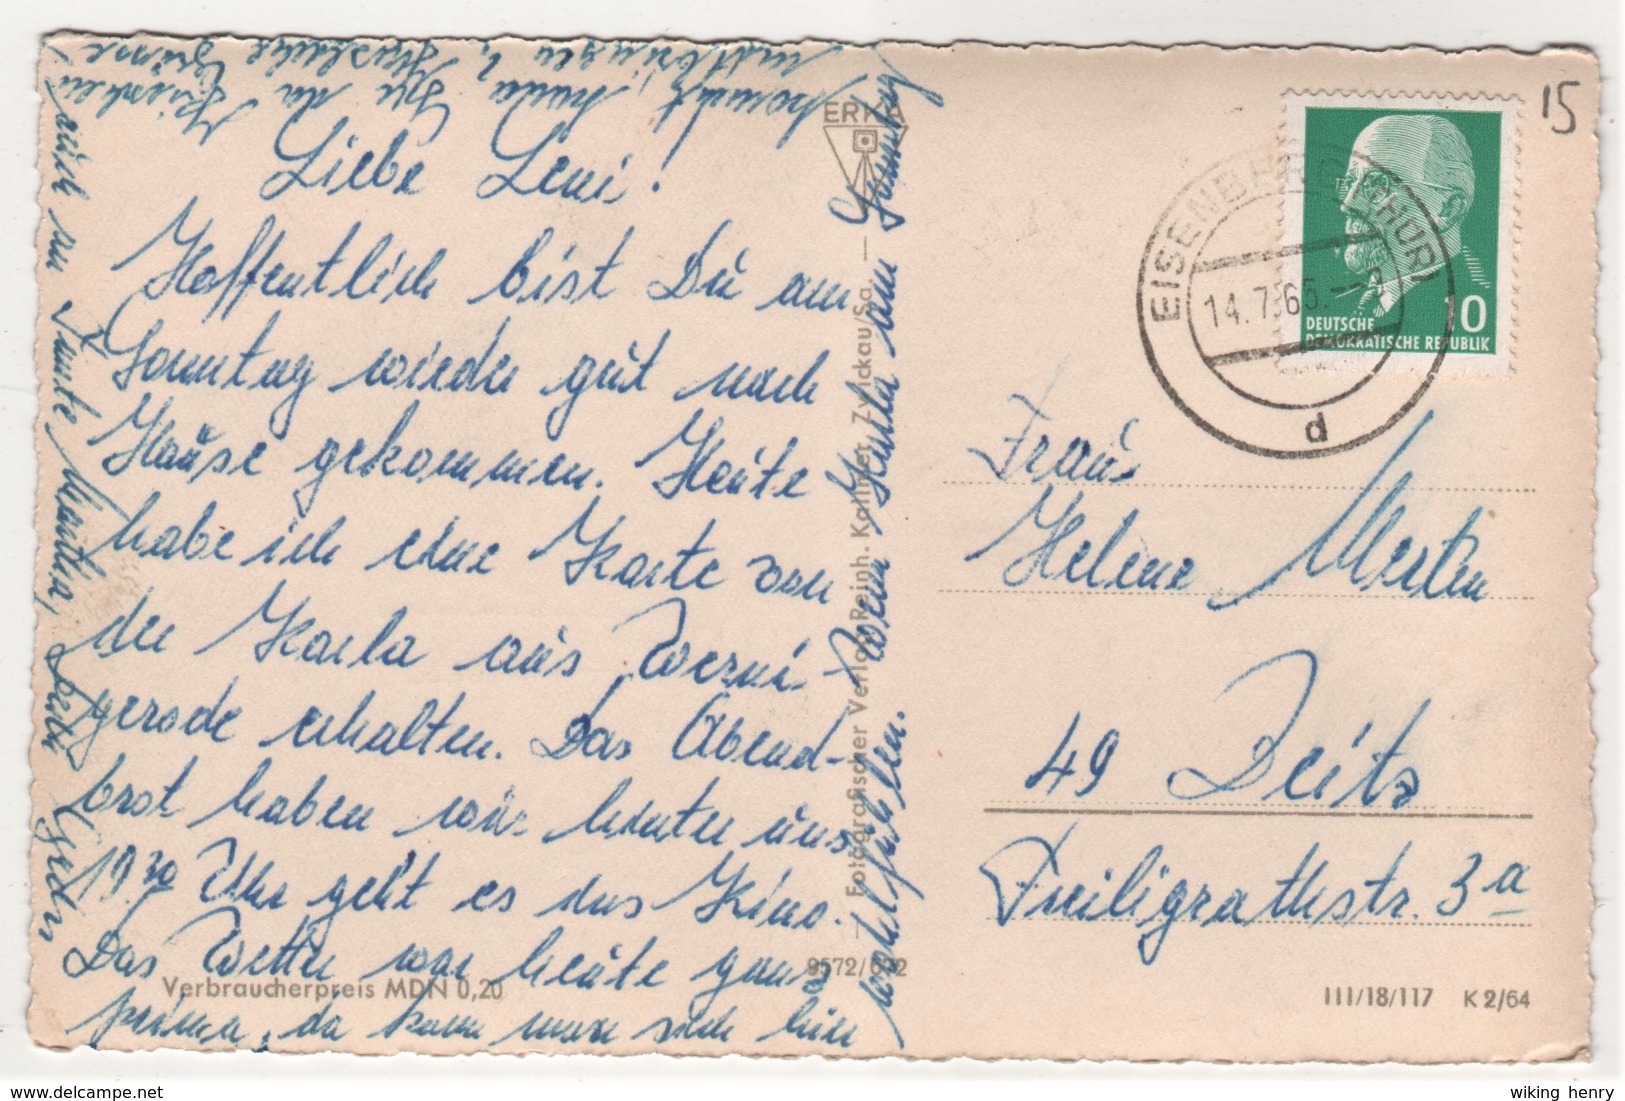 Liebe Leni!
Hoffentlich bist Du am
Sonntag wieder gut nach
Hause gekommen. Heute
habe ich eine Karte von
der Karla aus Werni-
gerode erhalten. Das Abend-
brot haben wir hinter uns,
19³⁰ Uhr geht es ins Kino.
Das Wetter war heute ganz
prima, da kann man sich hier
wohlfühlen. Wenn Karla am Sonntag
kommt,
mitbringen,
Herzliche Grüße
auch an Tante Martha,
ERKA
Fotografischer Verlag Reinh. Kallmer, Zwickau/Sa.
9572/692
Verbraucherpreis MDN 0,20
15
EISENBERG (THÜR)
14.7.65.
d
10
DEUTSCHE
DEMOKRATISCHE REPUBLIK
Frau
Helene Merten
49 Zeitz
Freiligrathstr. 3a
III/18/117 K 2/64
delcampe.net
wiking henry